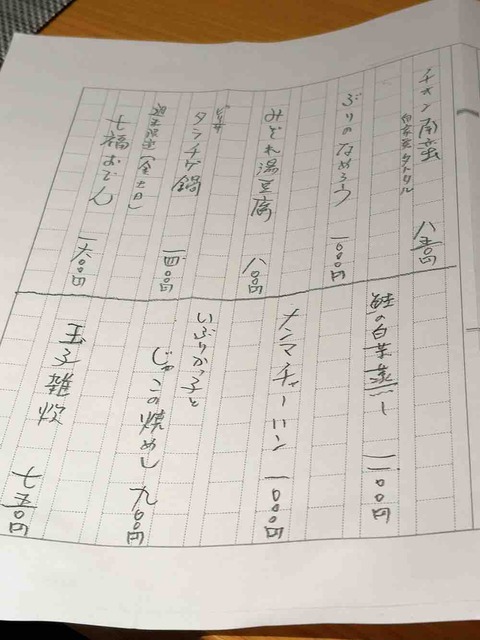 チキン南蛮 八五〇円
自家製タルタル
ぶりのなめろう 一〇〇〇円
みぞれ湯豆腐 八〇〇円
ピリ辛
タラチゲ鍋 一四〇〇円
週末限定(金土日)
七福おでん 一六〇〇円
鮭の白菜蒸し 一一〇〇円
メンマチャーハン 一〇〇〇円
いぶりがっこと
じゃこの焼めし 九〇〇円
玉子雑炊 七五〇円